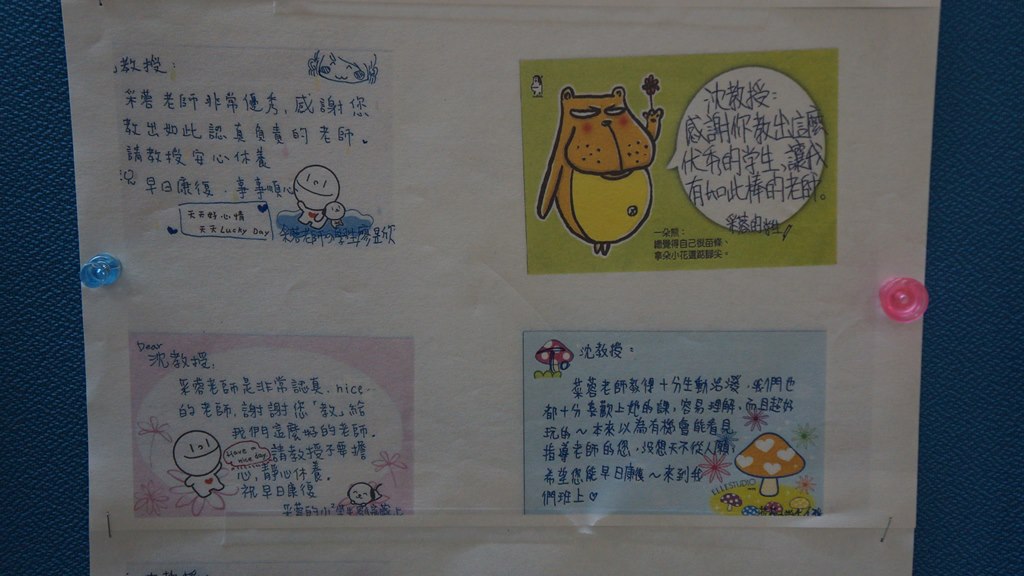 教授：
采蓉老師非常優秀，感謝您
教出如此認真負責的老師。
請教授安心休養
祝 早日康復．事事順心
天天好心情
天天 Lucky Day
沈教授：
感謝你教出這麼
优秀的学生，讓我
有如此棒的老師。
采蓉的学生
一朵熊：
總覺得自己很苗條、
拿朵小花還踮腳尖。
Dear
沈教授：
采蓉老師是非常認真．nice．
的老師，謝謝您「教」給
我們這麼好的老師。
Have a nice day
請教授不要擔
心，靜心休養。
祝 早日康復
沈教授：
采蓉老師教得十分生動活潑．我們也
都十分喜歡上她的課，容易理解，而且超好
玩的～本來以為有機會能看見
指導老師的您，沒想天不從人願，
希望您能早日康復～來到我
們班上♡
ELLESTUDIO